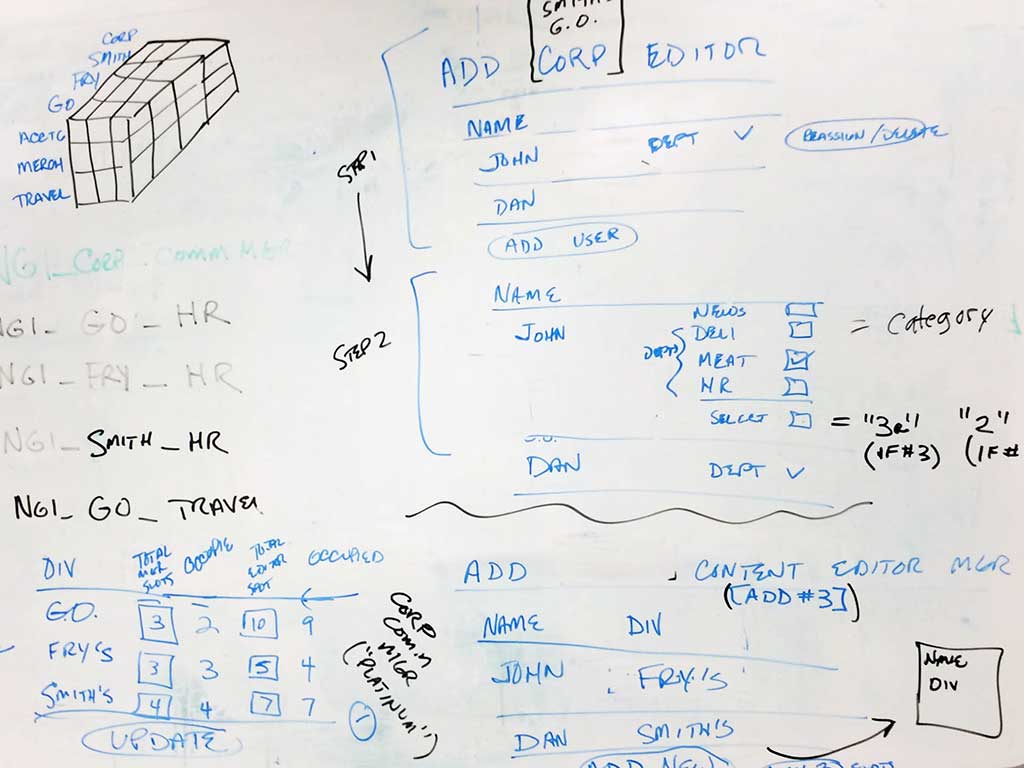 CORP
SMITH
FRY
GO
ACCTG
MERCH
TRAVEL
NG1_CORP COMM MGR
NG1_ GO _ HR
NG1_FRY _ HR
NG1_ SMITH _ HR
NG1_ GO _ TRAVEL
G.O.
ADD CORP EDITOR
STEP 1
NAME
JOHN DEPT
DAN
ADD USER
STEP 2
NAME
JOHN
DEPTS
NEWS
DELI
MEAT
HR
SELECT
= Category
= "3a" "2"
(IF #3) (IF #
DAN DEPT
DIV TOTAL MGR SLOTS TOTAL EDITOR SLOT OCCUPIED
G.O. 3 2 10 9
FRY'S 3 3 5 4
SMITH'S 4 4 7 7
UPDATE
CORP
COMM
MGR
("PLATINUM")
ADD CONTENT EDITOR MGR
([ADD #3])
NAME DIV
JOHN FRY'S
DAN SMITH'S
ADD NEW
NAME
DIV